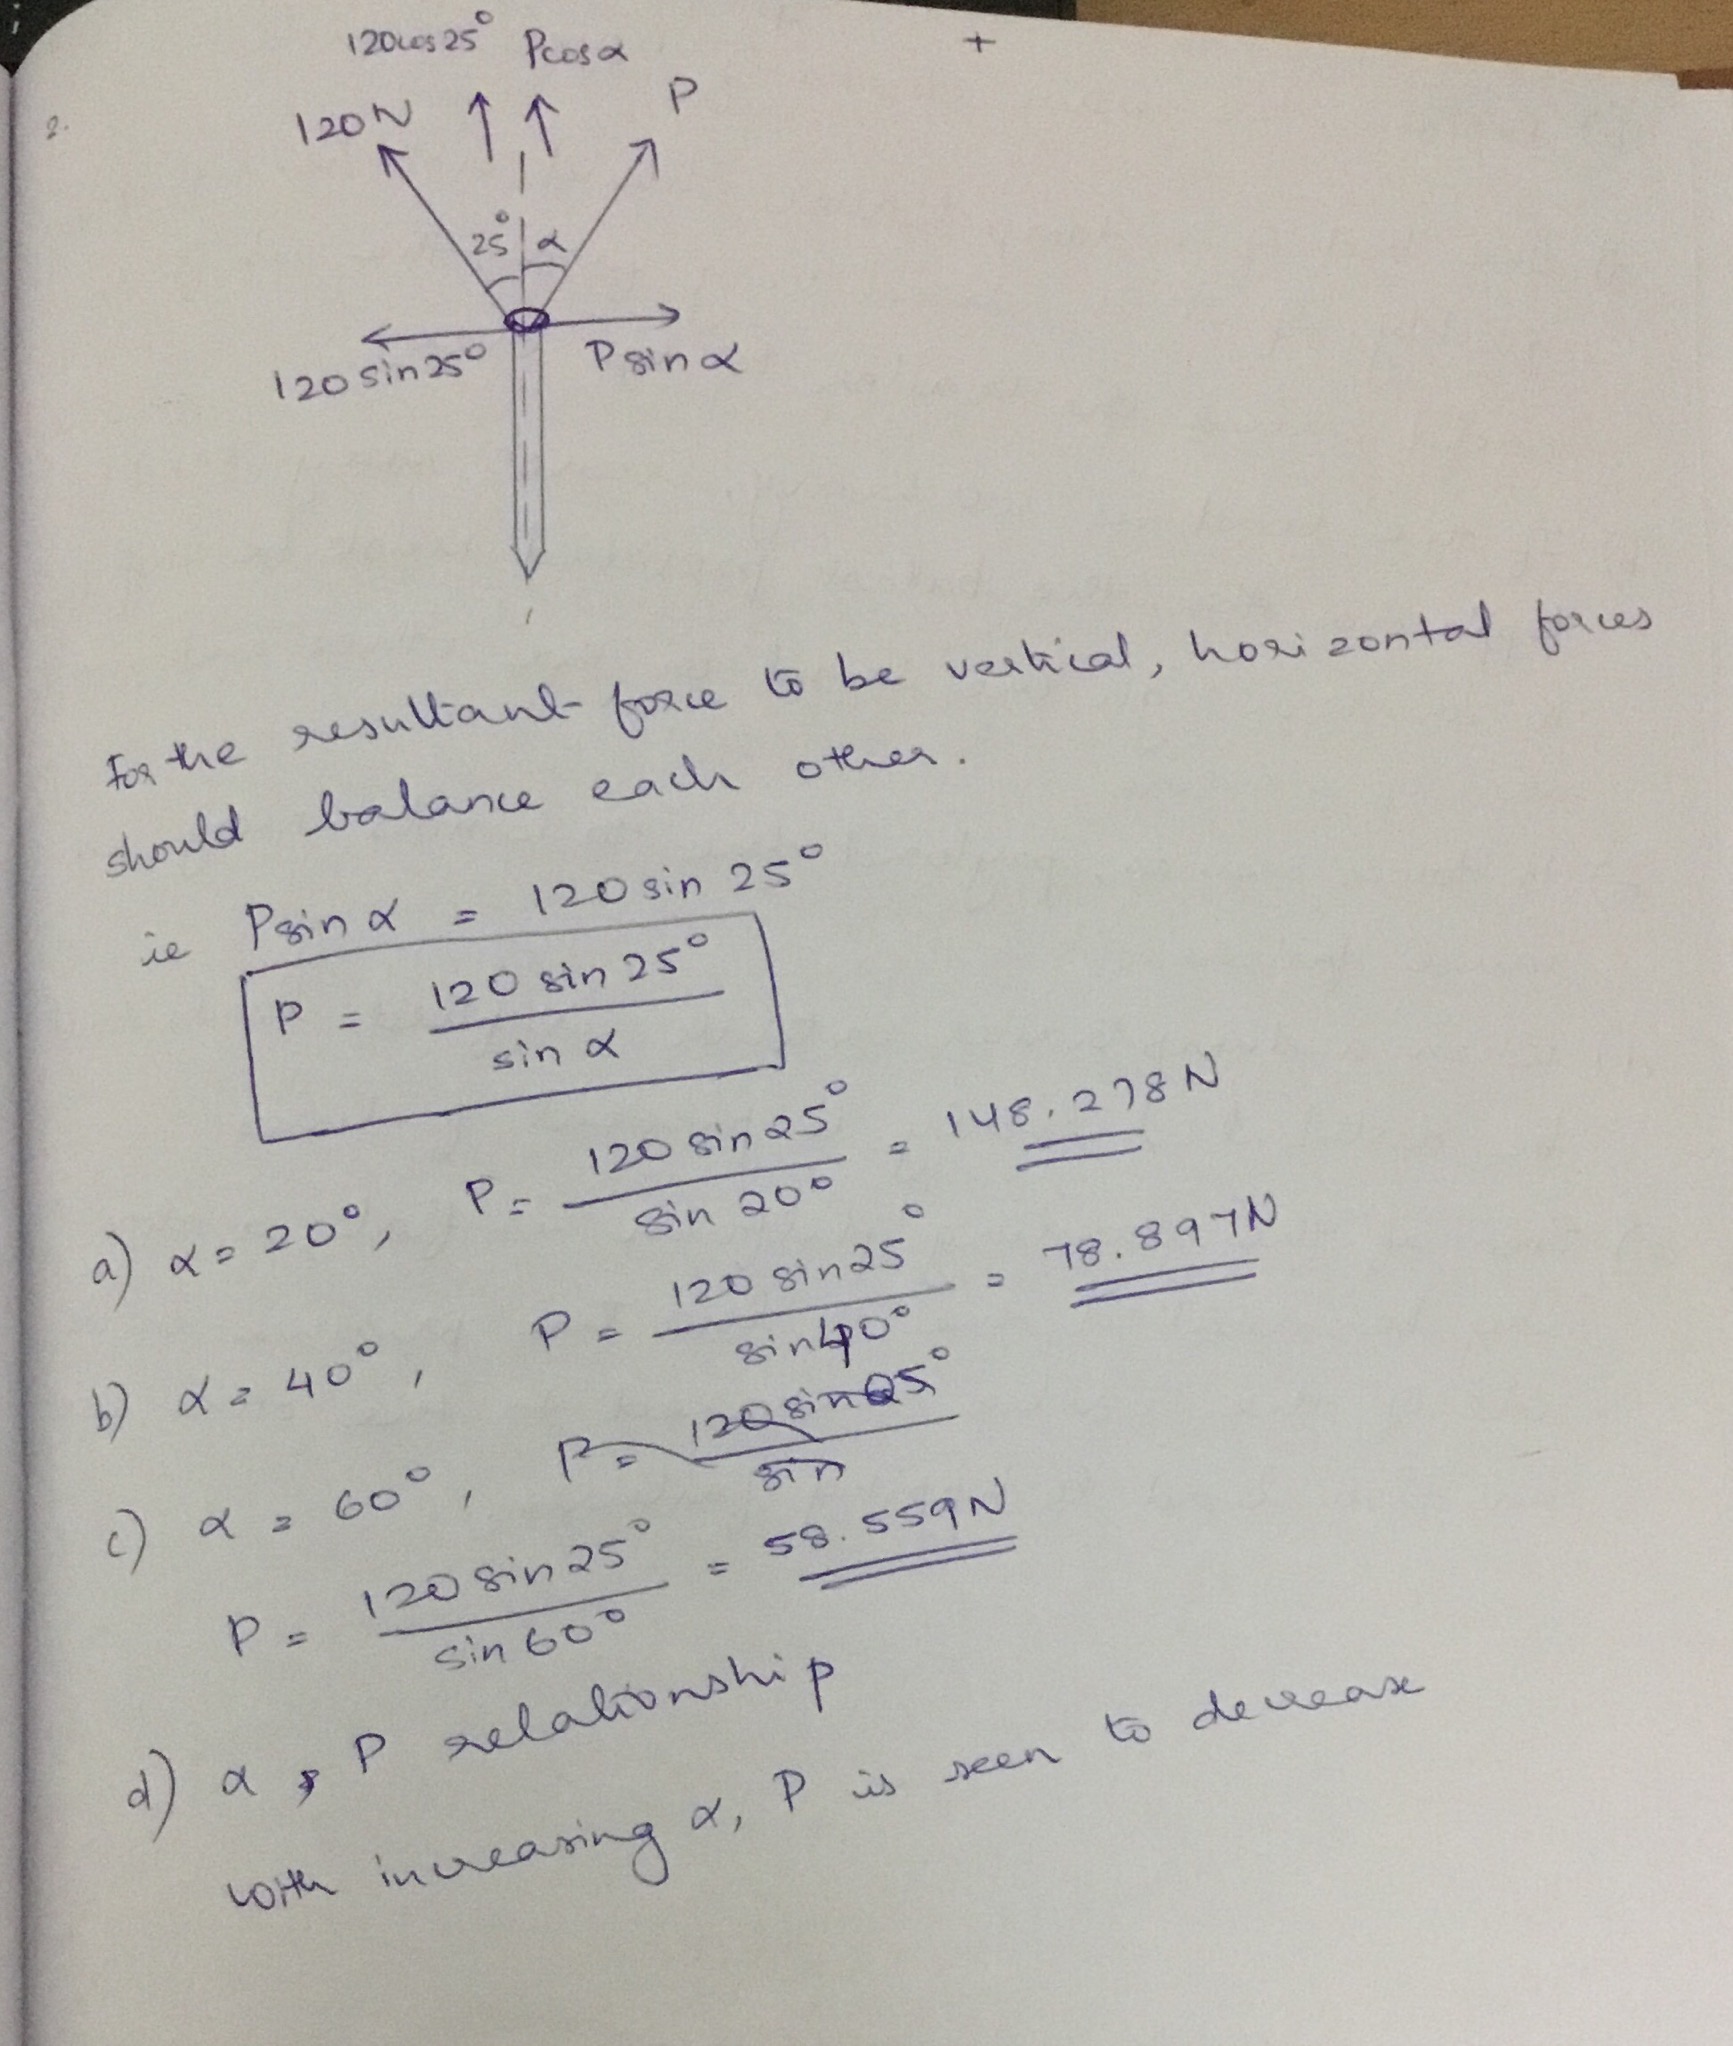 2.
120cos25° Pcosα
120N P
25° α
120 sin25° Psinα
+
For the resultant force to be vertical, horizontal forces
should balance each other.
ie Psinα = 120 sin 25°
P = 120 sin 25° / sin α
a) α = 20°, P = 120 sin25° / sin 20° = 148.278N
b) α = 40°, P = 120 sin25° / sin40° = 78.897N
c) α = 60°, P = 120 sin25° / sin
P = 120 sin25° / sin 60° = 58.559N
d) α, P relationship
with increasing α, P is seen to decrease